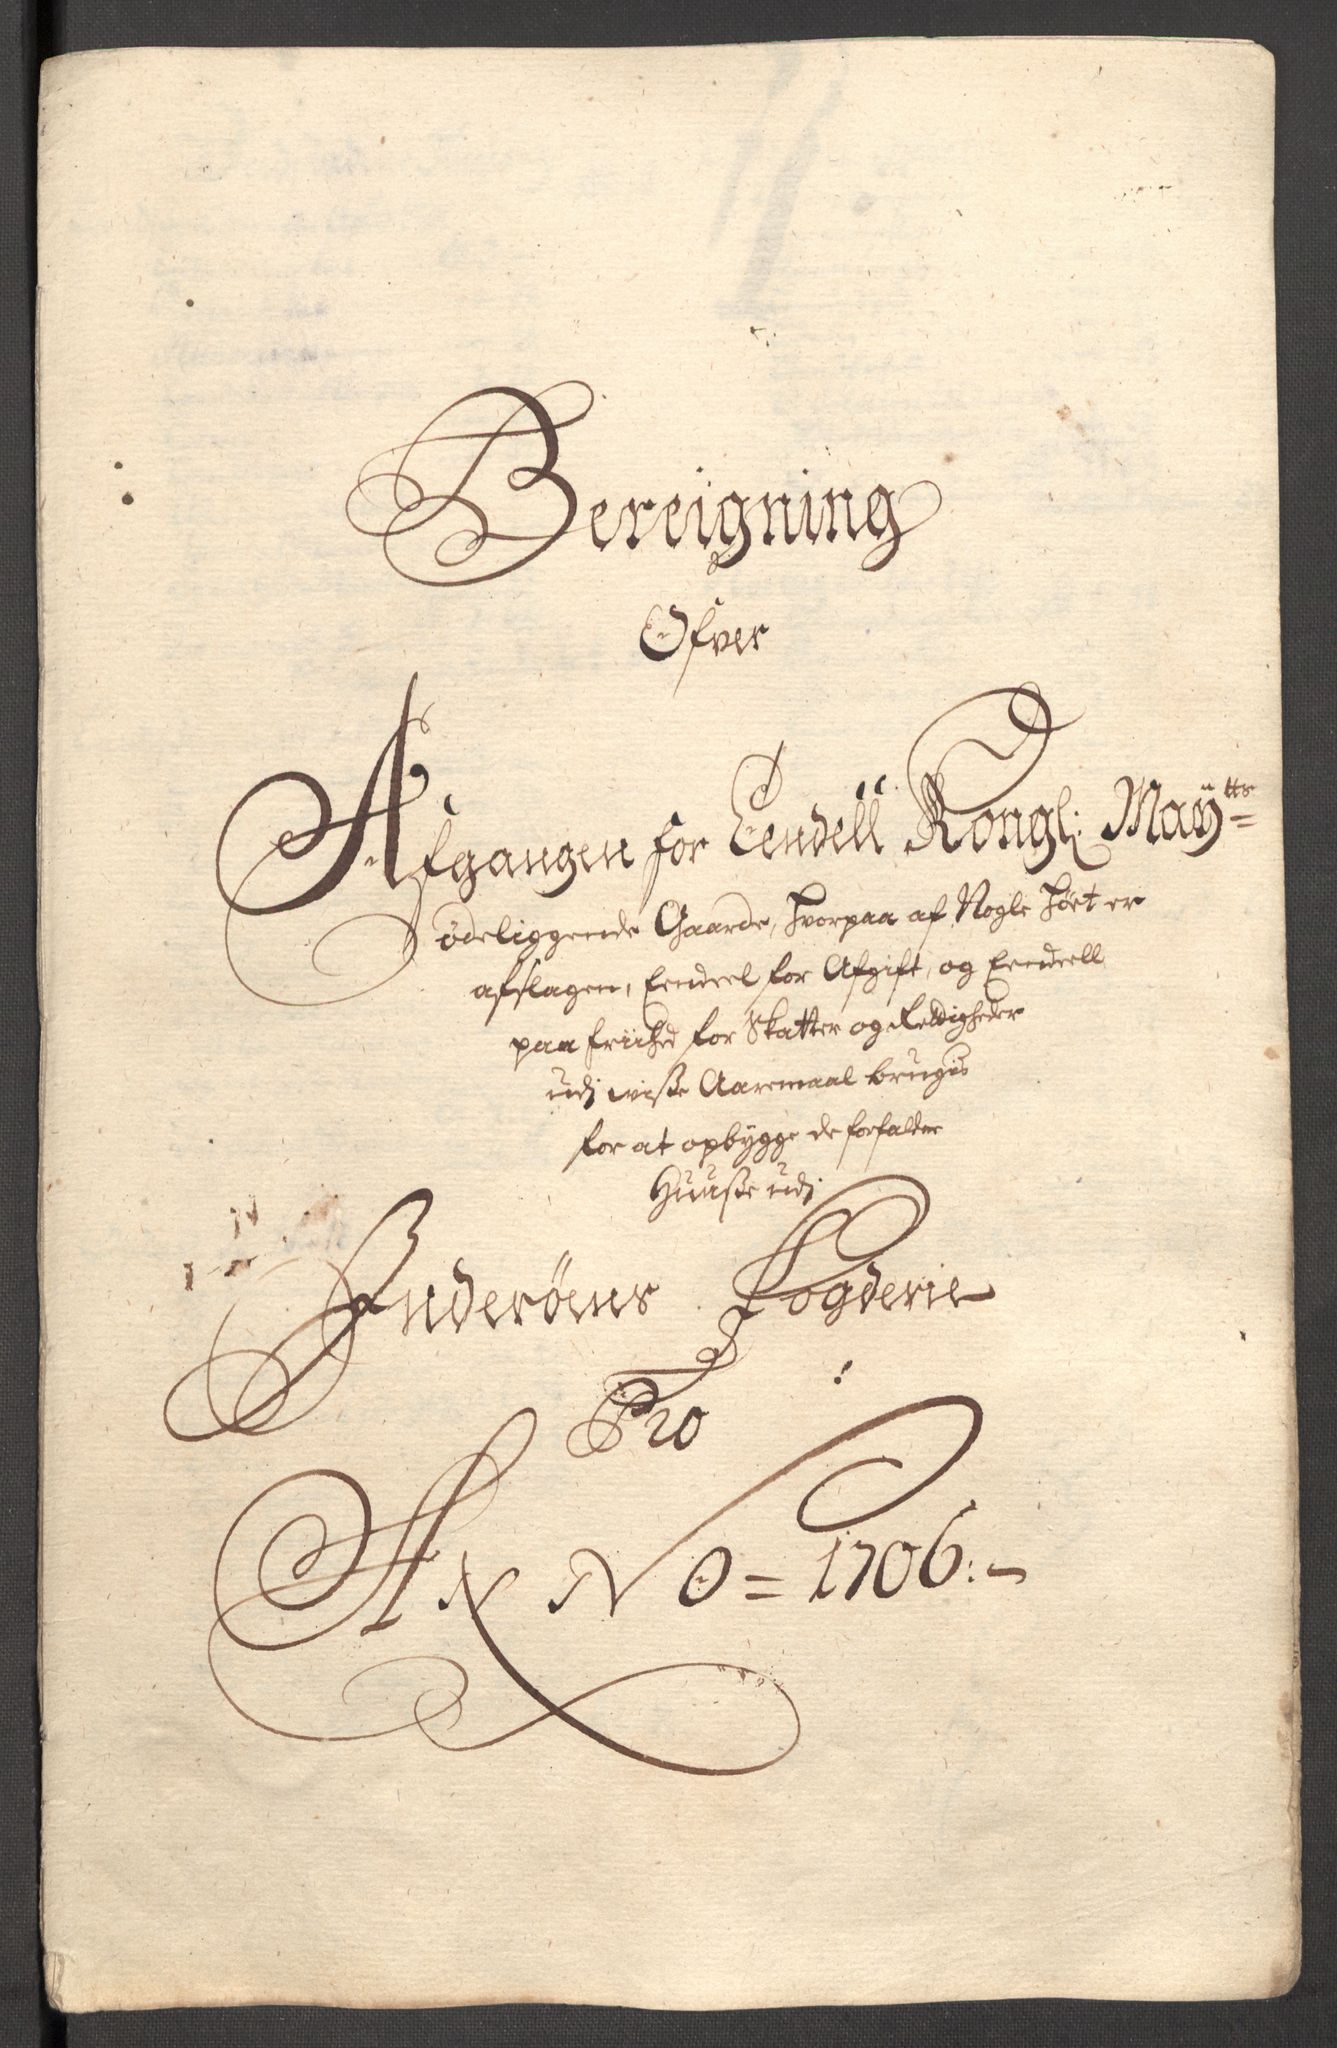 Bereigning
Ofver
Afgangen for Eendell Kongl: May=tts
ödeliggende Gaarde, hvorpaa af Nogle höet er
afslagen, Eendeel for Afgift, og Eendeell
paa friihed for Skatter og Rettigheder
udj visse Aaremaal brugis
for at opbygge de forfalden
Huusse udj
Inderöens Fogderie
Pro
ANNO = 1706: